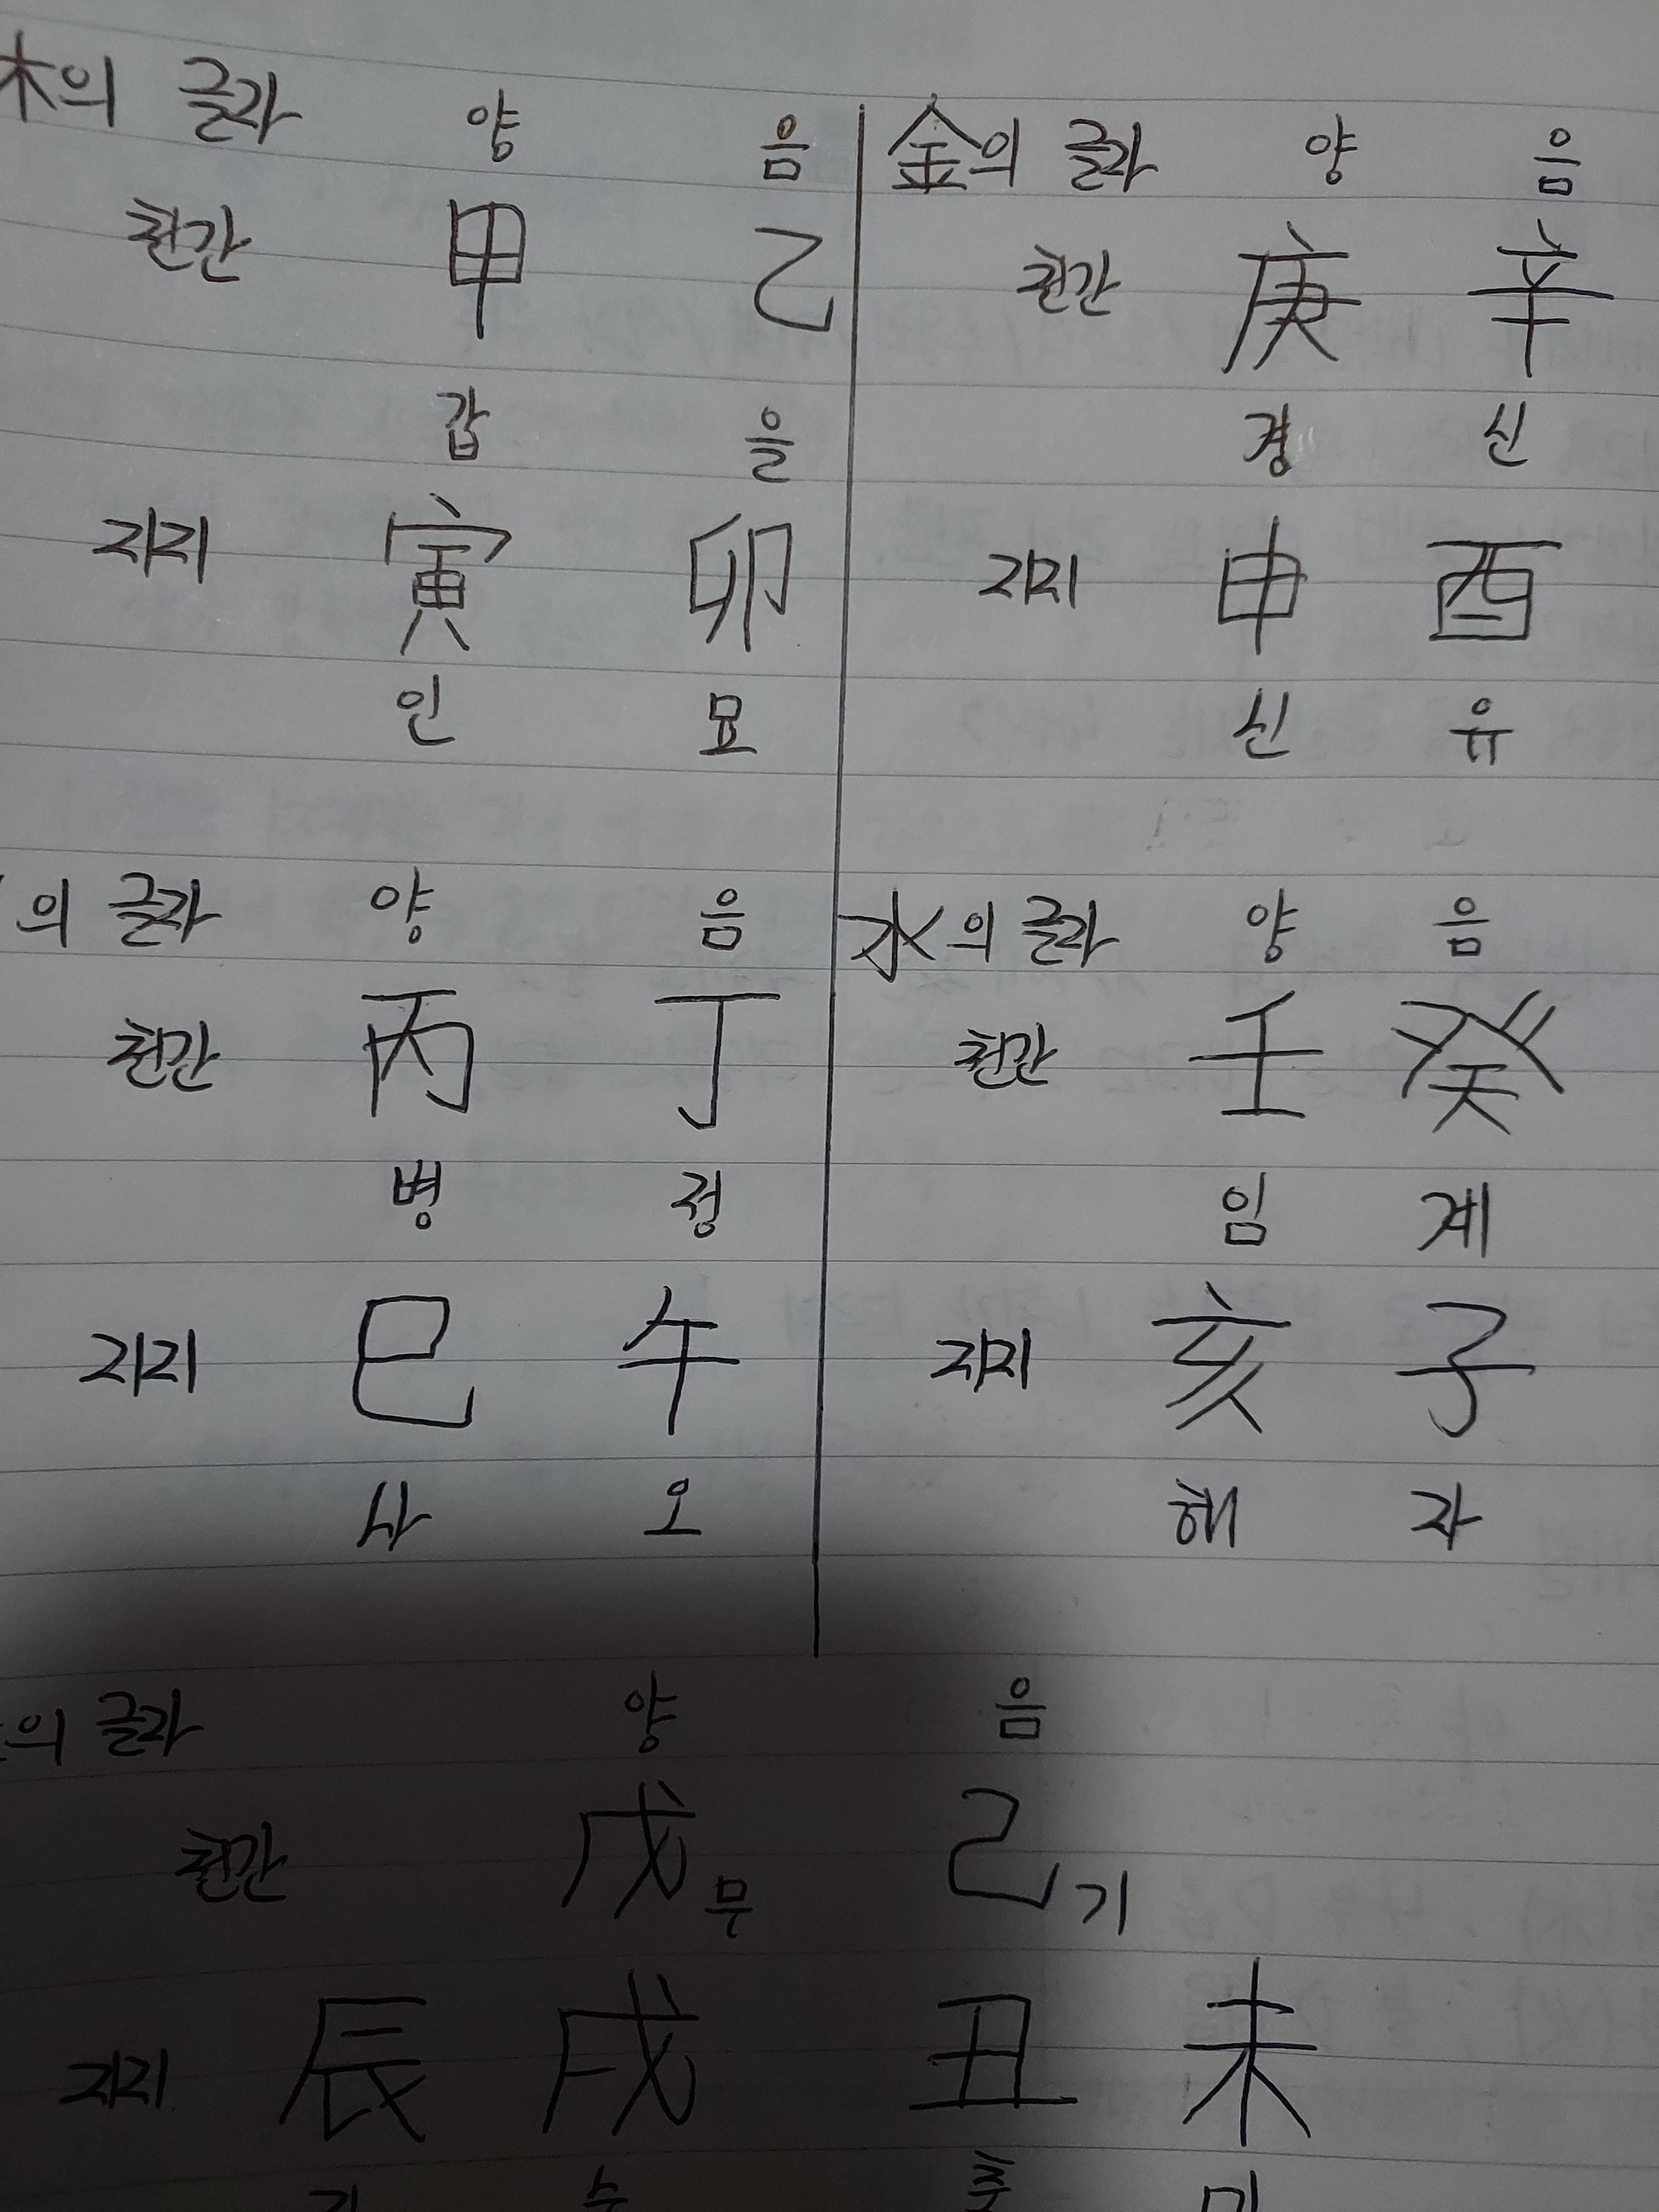 木의 글자 양 음
천간 甲 乙
갑 을
지지 寅 卯
인 묘
의 글자 양 음
천간 丙 丁
병 정
지지 巳 午
사 오
金의 글자 양 음
천간 庚 辛
경 신
지지 申 酉
신 유
水의 글자 양 음
천간 壬 癸
임 계
지지 亥 子
해 자
의 글자 양 음
천간 戊무 己기
지지 辰 戌 丑 未
축 미